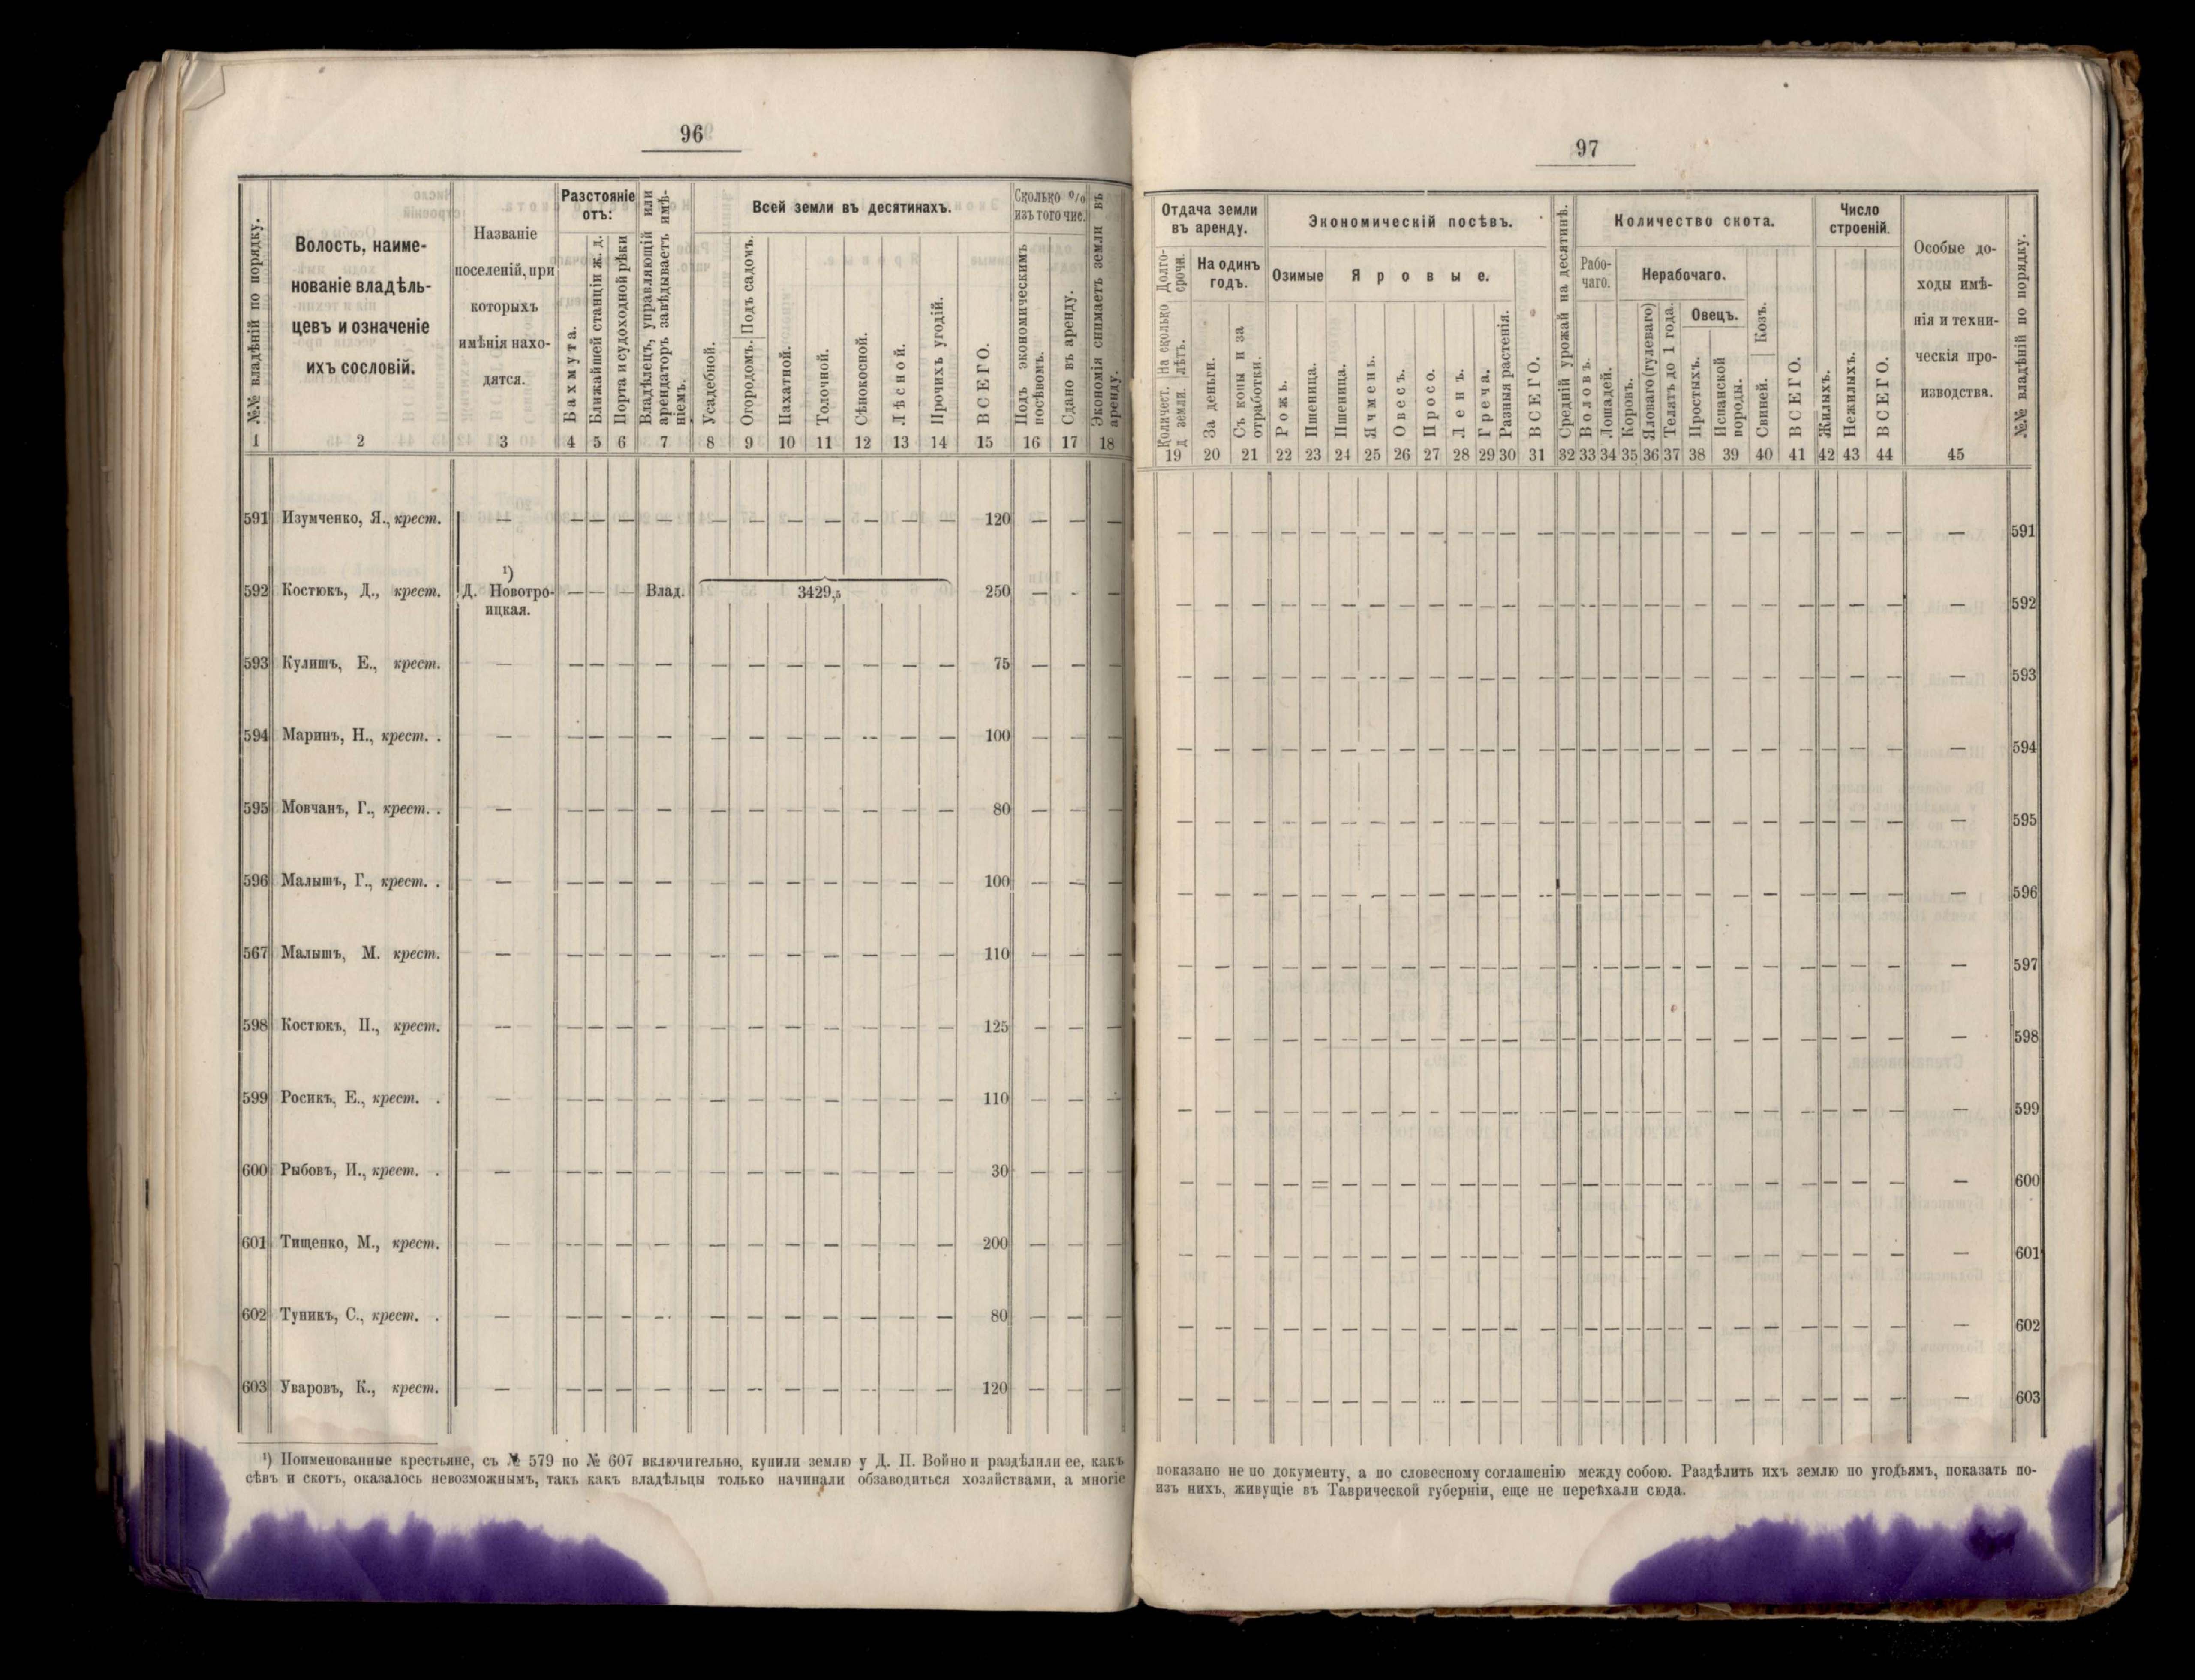 96
№№ владѣній по порядку.
Волость, наиме-
нованіе владѣль-
цевъ и означеніе
ихъ сословій.
Названіе
поселеній, при
которыхъ
имѣнія нахо-
дятся.
Разстояніе
отъ:
Бахмута.
Ближайшей станціи ж. д.
Порта и судоходной рѣки
Владѣлецъ, управляющій или
арендаторъ завѣдываетъ имѣ-
ніемъ.
Всей земли въ десятинахъ.
Усадебной.
Огородомъ. Подъ садомъ.
Пахатной.
Толочной.
Сѣнокосной.
Лѣсной.
Прочихъ угодій.
ВСЕГО.
Сколько %
изъ того чис.
Подъ экономическимъ
посѣвомъ.
Сдано въ аренду.
Экономія снимаетъ земли въ
аренду.
1 2 3 4 5 6 7 8 9 10 11 12 13 14 15 16 17 18
591 Изумченко, Я., крест. — — — — — — — — — — — — 120 — — —
¹)
592 Костюкъ, Д., крест. Д. Новотро- — — — Влад. 3429,5 250 — - —
ицкая.
593 Кулишъ, Е., крест. — — — — — — — — — — — — 75 — — —
594 Маринъ, Н., крест. . — — — — — — — — — — — — 100 — — —
595 Мовчанъ, Г., крест. . — — — — — — — — — — — — 80 — — —
596 Малышъ, Г., крест. . — — — — — — — — — — — — 100 — — —
567 Малышъ, М. крест. — — — — — — — — — — — — 110 — — —
598 Костюкъ, П., крест. — — — — — — — — — — — — 125 — — —
599 Росикъ, Е., крест. . — — — — — — — — — — — — 110 — — —
600 Рыбовъ, И., крест. . — — — — — — — — — — — — 30 — — —
601 Тищенко, М., крест. — — — — — — — — — — — — 200 — — —
602 Туникъ, С., крест. . — — — — — — — — — — — — 80 — — —
603 Уваровъ, К., крест. — — — — — — — — — — — — 120 — — —
¹) Поименованные крестьяне, съ № 579 по № 607 включительно, купили землю у Д. П. Войно и раздѣлили ее, какъ
сѣвъ и скотъ, оказалось невозможнымъ, такъ какъ владѣльцы только начинали обзаводиться хозяйствами, а многіе
97
Отдача земли
въ аренду.
Долго-
срочн.
Количест. На сколько
д земли. лѣтъ.
На одинъ
годъ.
За деньги.
Съ копы и за
отработки.
Экономическій посѣвъ.
Озимые
Яровые.
Рожь.
Пшеница.
Пшеница.
Ячмень.
Овесъ.
Просо.
Ленъ.
Греча.
Разныя растенія.
ВСЕГО.
Средній урожай на десятинѣ.
Количество скота.
Рабо-
чаго.
Нерабочаго.
Воловъ.
Лошадей.
Коровъ.
Яловаго (гулеваго)
Телятъ до 1 года.
Овецъ.
Простыхъ.
Испанской
породы.
Свиней. Козъ.
ВСЕГО.
Число
строеній.
Жилыхъ.
Нежилыхъ.
ВСЕГО.
Особые до-
ходы имѣ-
нія и техни-
ческія про-
изводства.
№№ владѣній по порядку.
19 20 21 22 23 24 25 26 27 28 29 30 31 32 33 34 35 36 37 38 39 40 41 42 43 44 45
— — — — — — — — — — — — — — — — — — — — — — — — — — — 591
— — — — — — — — — — — — — — — — — — — — — — — — — — — 592
— — — — — — — — — — — — — — — — — — — — — — — — — — — 593
— — — — — — — — — — — — — — — — — — — — — — — — — — — 594
— — — — — — — — — — — — — — — — — — — — — — — — — — — 595
— — — — — — — — — — — — — — — — — — — — — — — — — — — 596
— — — — — — — — — — — — — — — — — — — — — — — — — — — 597
— — — — — — — — — — — — — — — — — — — — — — — — — — — 598
— — — — — — — — — — — — — — — — — — — — — — — — — — — 599
— — — — — — — — — — — — — — — — — — — — — — — — — — — 600
— — — — — — — — — — — — — — — — — — — — — — — — — — — 601
— — — — — — — — — — — — — — — — — — — — — — — — — — — 602
— — — — — — — — — — — — — — — — — — — — — — — — — — — 603
показано не по документу, а по словесному соглашенію между собою. Раздѣлить ихъ землю по угодьямъ, показать по-
изъ нихъ, живущіе въ Таврической губерніи, еще не переѣхали сюда.